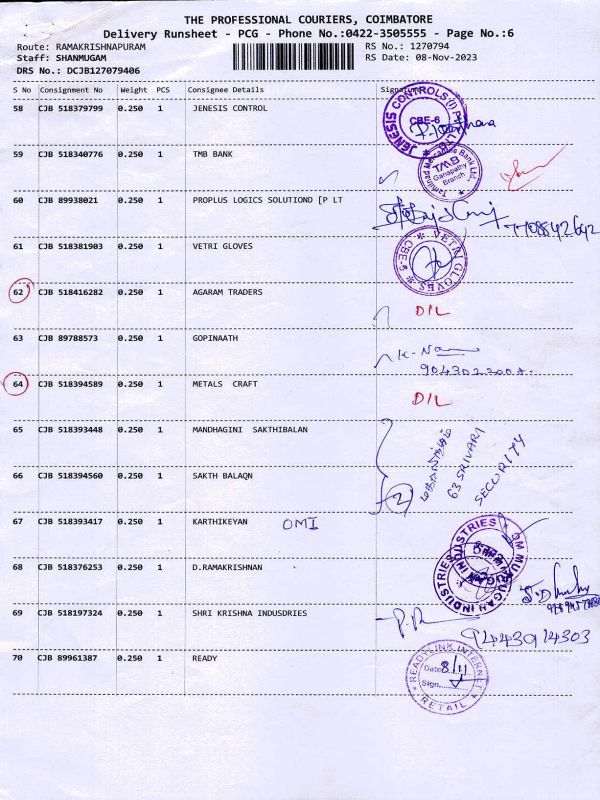 THE PROFESSIONAL COURIERS, COIMBATORE
Delivery Runsheet - PCG - Phone No.:0422-3505555 - Page No.:6
Route: RAMAKRISHNAPURAM RS No.: 1270794
Staff: SHANMUGAM RS Date: 08-Nov-2023
DRS No.: DCJB127079406
S No Consignment No Weight PCS Consignee Details Signature
58 CJB 518379799 0.250 1 JENESIS CONTROL
JENESIS CONTROLS (I) P LTD CBE-6
59 CJB 518340776 0.250 1 TMB BANK
Tamilnad Mercantile Bank Ltd., TMB Ganapathy Branch
60 CJB 89938021 0.250 1 PROPLUS LOGICS SOLUTIOND [P LT
7708542642
61 CJB 518381903 0.250 1 VETRI GLOVES
VETRI GLOVES CBE-5
62 CJB 518416282 0.250 1 AGARAM TRADERS D/L
63 CJB 89788573 0.250 1 GOPINAATH
64 CJB 518394589 0.250 1 METALS CRAFT D/L
65 CJB 518393448 0.250 1 MANDHAGINI SAKTHIBALAN
63 SRIVARI
SECURITY
66 CJB 518394560 0.250 1 SAKTH BALAQN 2
67 CJB 518393417 0.250 1 KARTHIKEYAN OMI
OM MURUGAN INDUSTRIES
68 CJB 518376253 0.250 1 D.RAMAKRISHNAN
69 CJB 518197324 0.250 1 SHRI KRISHNA INDUSDRIES
9443914303
70 CJB 89961387 0.250 1 READY
READYLINK INTERNET
Date 8/11
Sign.
RETAIL